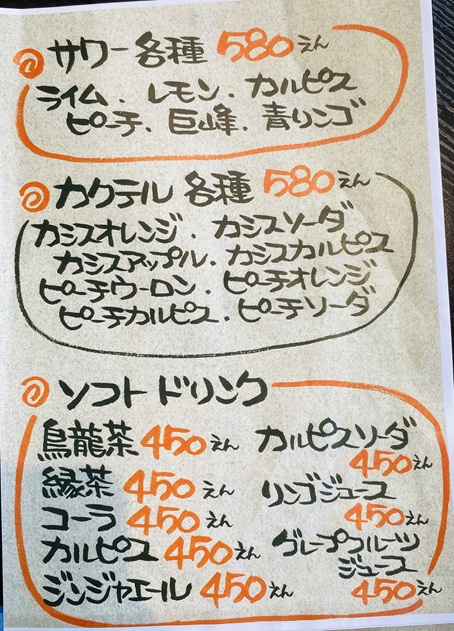 サワー各種 580えん
ライム・レモン・カルピス
ピーチ・巨峰・青リンゴ
カクテル 各種 580えん
カシスオレンジ・カシスソーダ
カシスアップル・カシスカルピス
ピーチウーロン・ピーチオレンジ
ピーチカルピス・ピーチソーダ
ソフトドリンク
烏龍茶 450えん
縁茶 450えん
コーラ 450えん
カルピス 450えん
ジンジャエール 450えん
カルピスソーダ
450えん
リンゴジュース
450えん
グレープフルーツ
ジュース
450えん